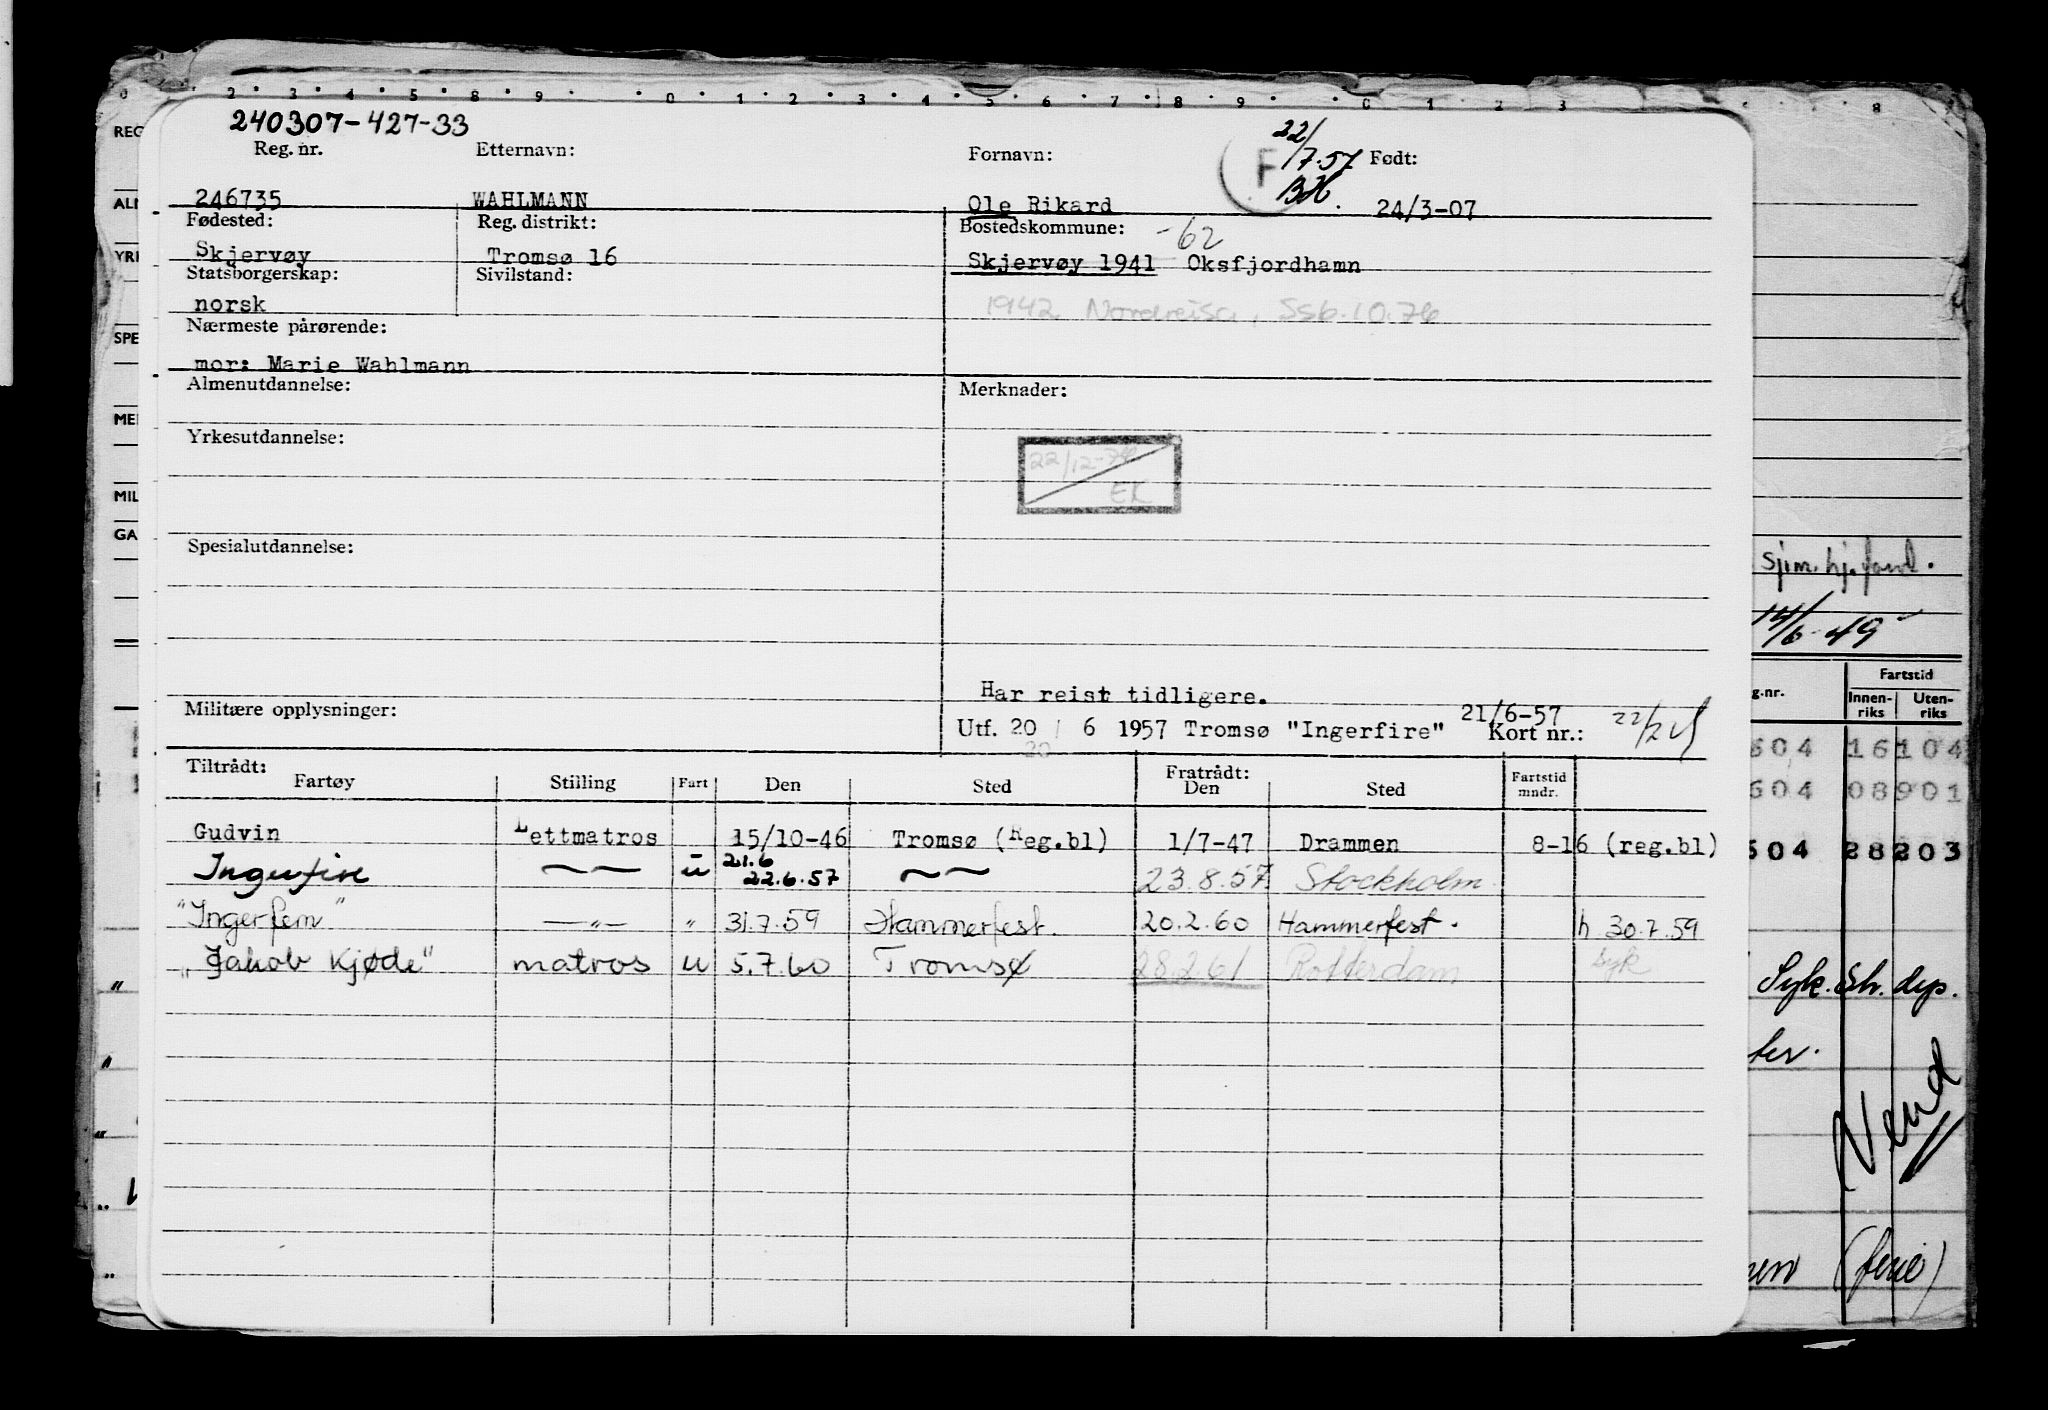 240307-427-33
Reg. nr. Etternavn: Fornavn: F 22/7.57 BH. Født:
246735 WAHLMANN Ole Rikard 24/3-07
Fødested: Reg. distrikt: Bostedskommune: -62
Skjervøy Tromsø 16 Skjervøy 1941 Oksfjordhamn
Statsborgerskap: Sivilstand:
norsk 1942 Nordreisa, Ssb.10.76
Nærmeste pårørende:
mor: Marie Wahlmann
Almenutdannelse: Merknader:
Yrkesutdannelse:
22/12-76
EK
Spesialutdannelse:
Sjm. hj. fond.
14/6-49
Har reist tidligere.
Militære opplysninger: Utf. 20 / 6 1957 Tromsø "Ingerfire" 21/6-57 Kort nr.:
20
Tiltrådt: Fratrådt:
Fartøy Stilling Fart Den Sted Den Sted Fartstid mndr.
Gudvin Lettmatros 15/10-46 Tromsø (Reg.bl) 1/7-47 Drammen 8-16 (reg.bl)
Ingerfire —〃— u 21.6 22.6.57 —〃— 23.8.57 Stockholm
"Ingerfem" —〃— 〃 31.7.59 Hammerfest. 20.2.60 Hammerfest. h 30.7.59
"Jakob Kjøde" matros u 5.7.60 Tromsø 28.2.61 Rotterdam syk
REG
YRK
SPE
MIL
GA
g.nr. Fartstid
Innenriks Utenriks
604 16 104
604 08 901
604 28 203
Syk. Sh. dep.
Vend
(ferie)